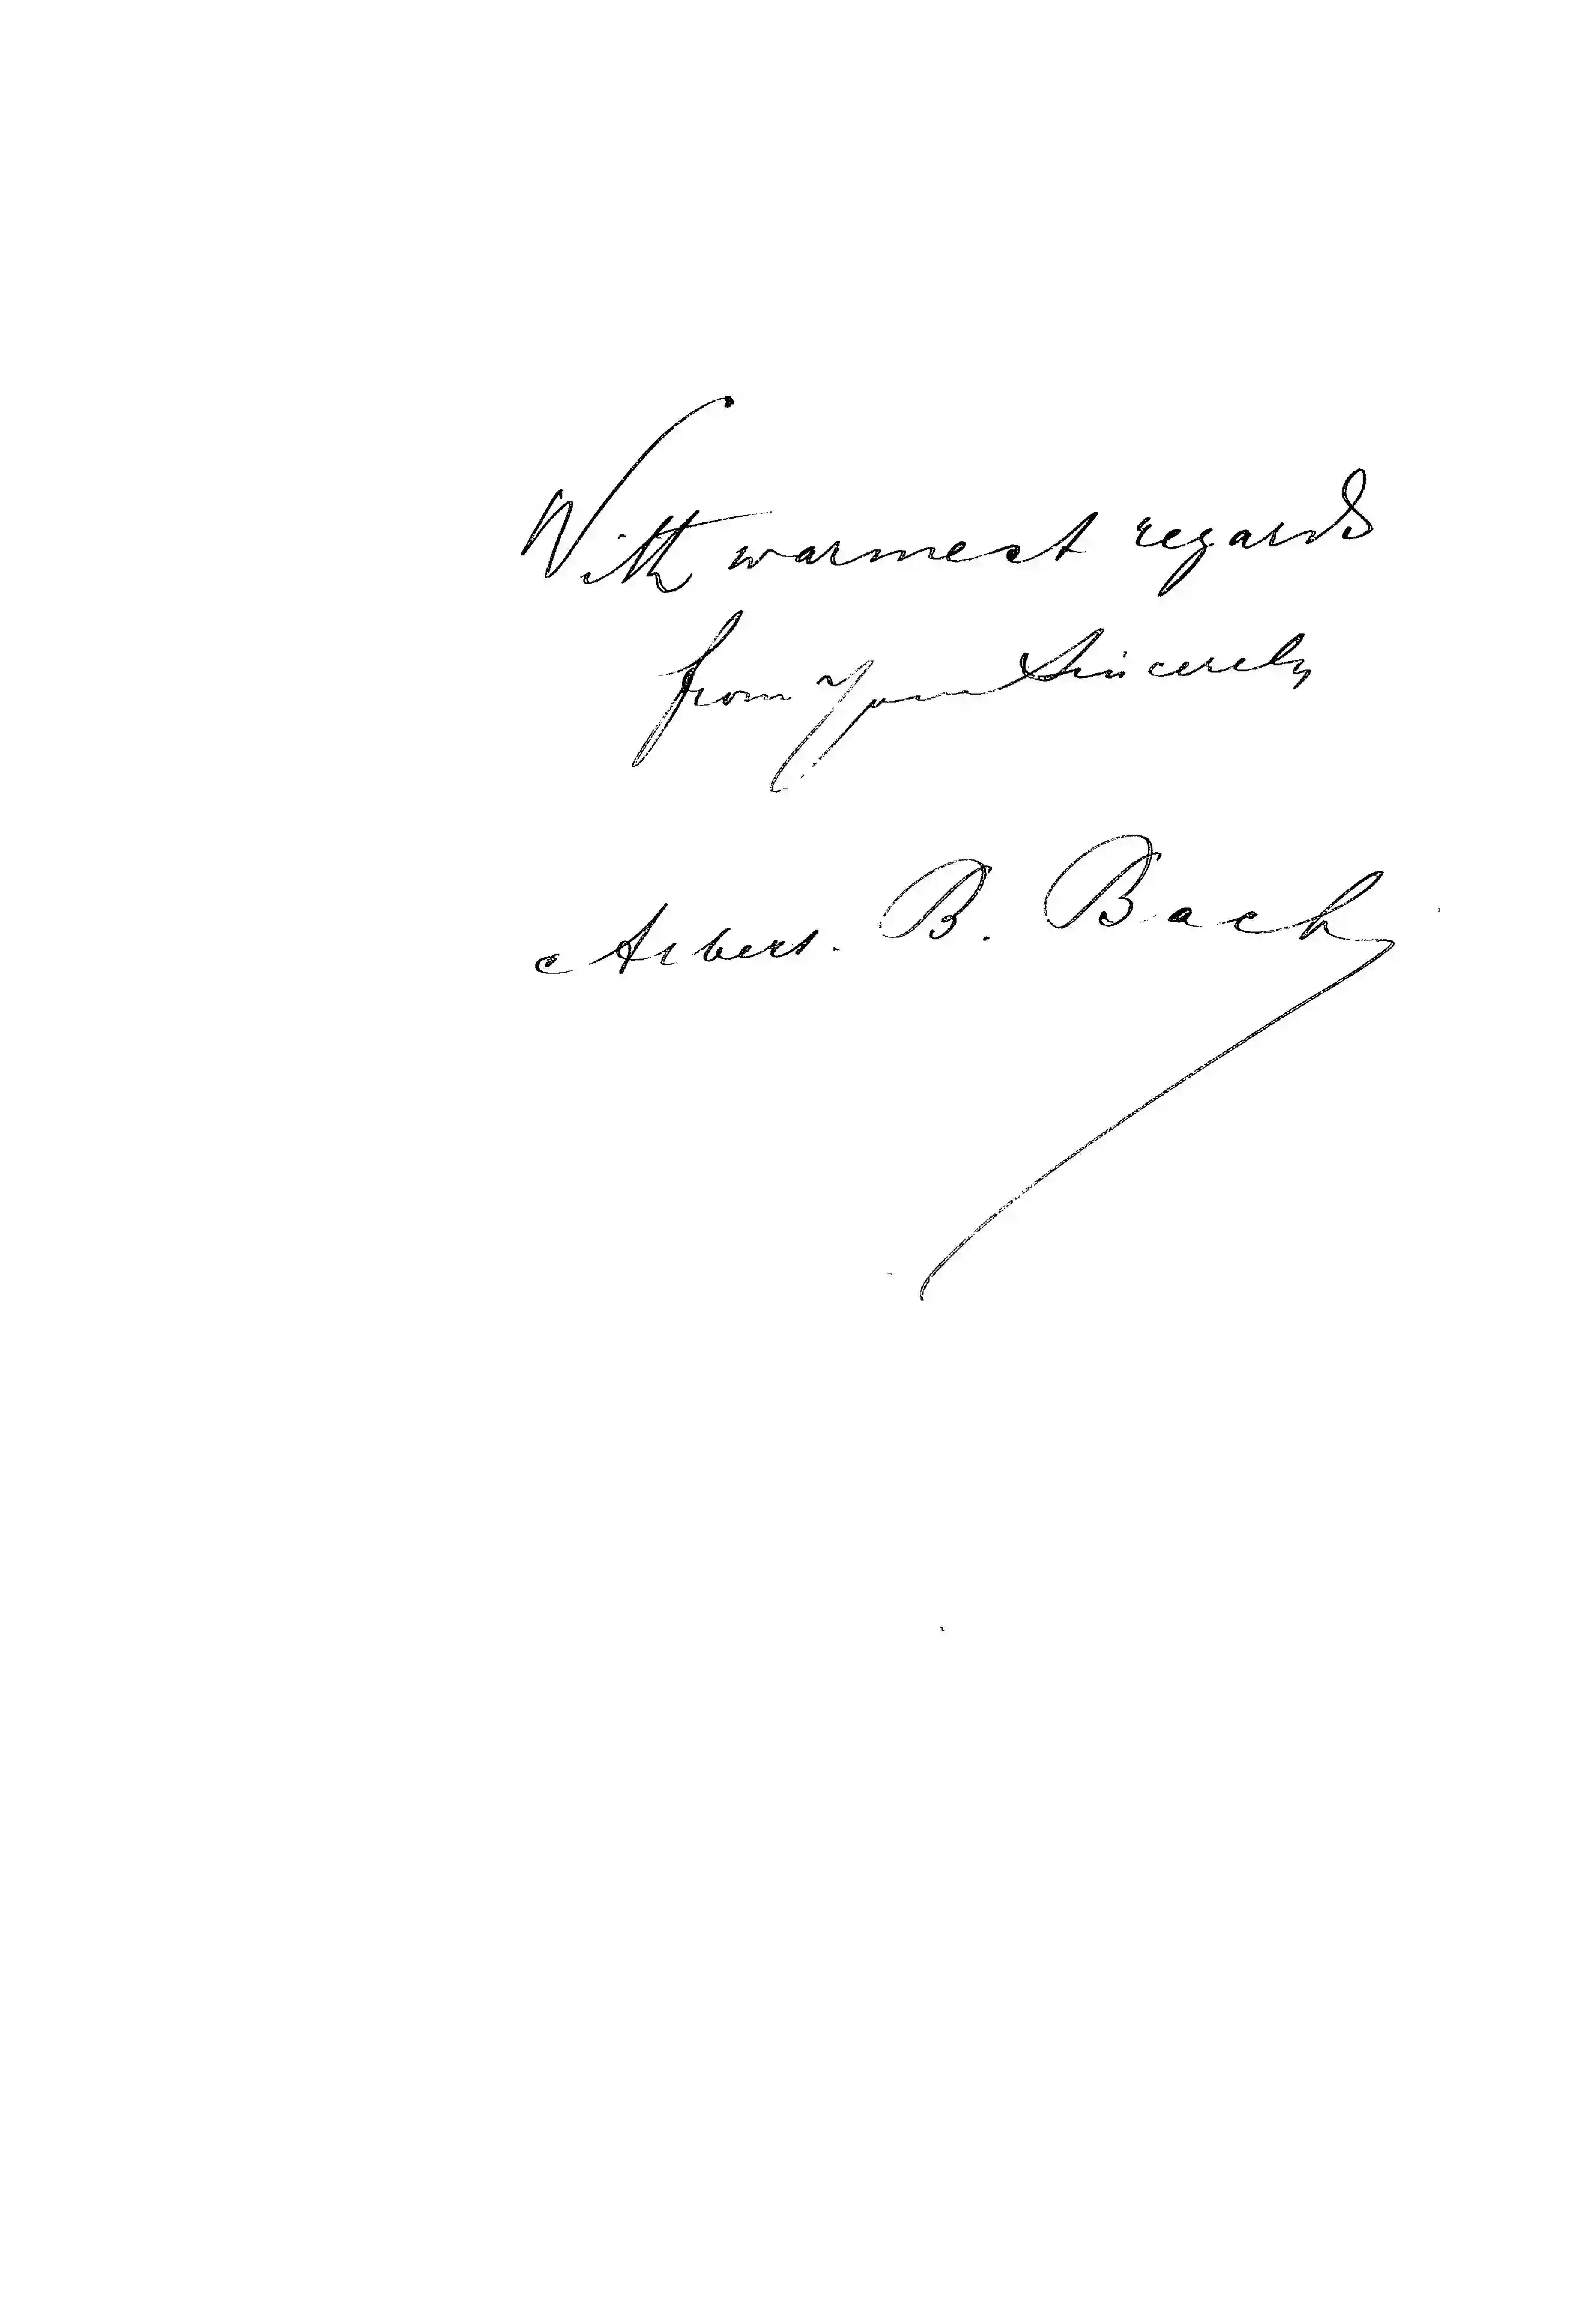 With warmest regards
from Yours Sincerely
Albert. B. Bach